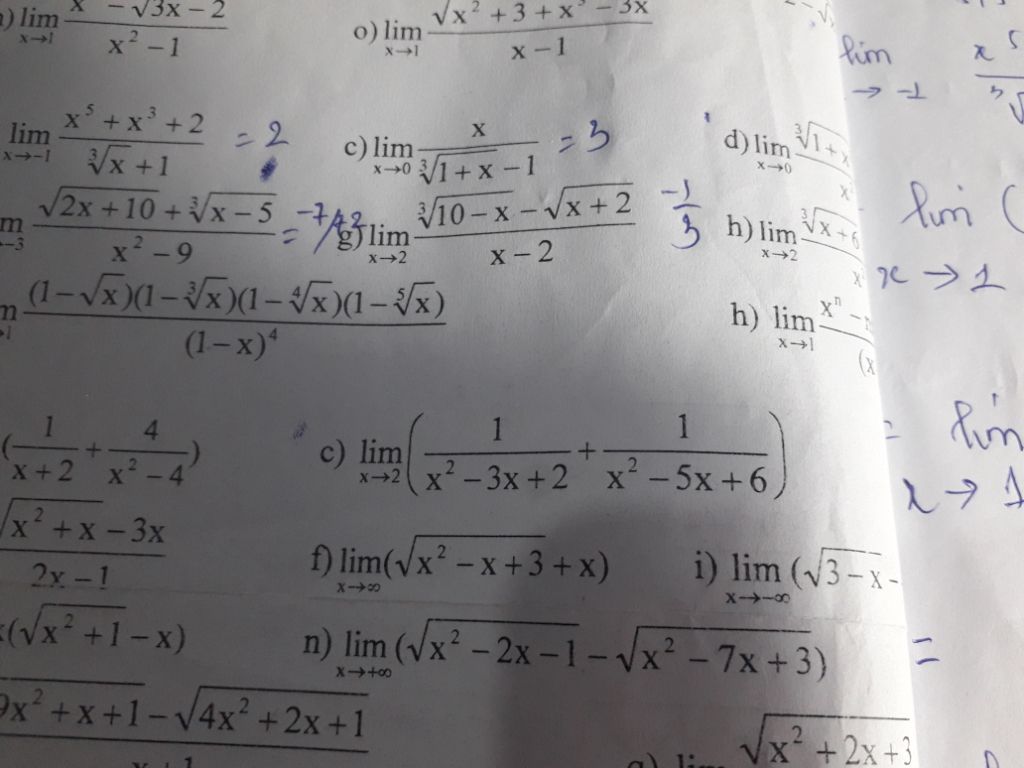 ) lim x→1 (x − √(3x − 2)) / (x² − 1)   o) lim x→1 (√(x² + 3) + x³ − 3x) / (x − 1)
lim → -1 x⁵
lim x→−1 (x⁵ + x³ + 2) / (∛x + 1) = 2   c) lim x→0 x / (∛(1 + x) − 1) = 3   d) lim x→0 ∛(1 + x
(√(2x + 10) + ∛(x − 5)) / (x² − 9) = -7/72   g) lim x→2 (∛(10 − x) − √(x + 2)) / (x − 2)   -1/3   h) lim x→2 ∛(x + 6
lim ( x → 1
(1 − √x)(1 − ∛x)(1 − ⁴√x)(1 − ⁵√x) / (1 − x)⁴   h) lim x→1 xⁿ −
(1/(x + 2) + 4/(x² − 4))   c) lim x→2 (1/(x² − 3x + 2) + 1/(x² − 5x + 6))
= lim x → 1
(√(x² + x) − 3x) / (2x − 1)   f) lim x→∞ (√(x² − x + 3) + x)   i) lim x→−∞ (√(3 − x) −
(√(x² + 1) − x)   n) lim x→+∞ (√(x² − 2x − 1) − √(x² − 7x + 3))   =
9x² + x + 1 − √(4x² + 2x + 1)   lim √(x² + 2x + 3)